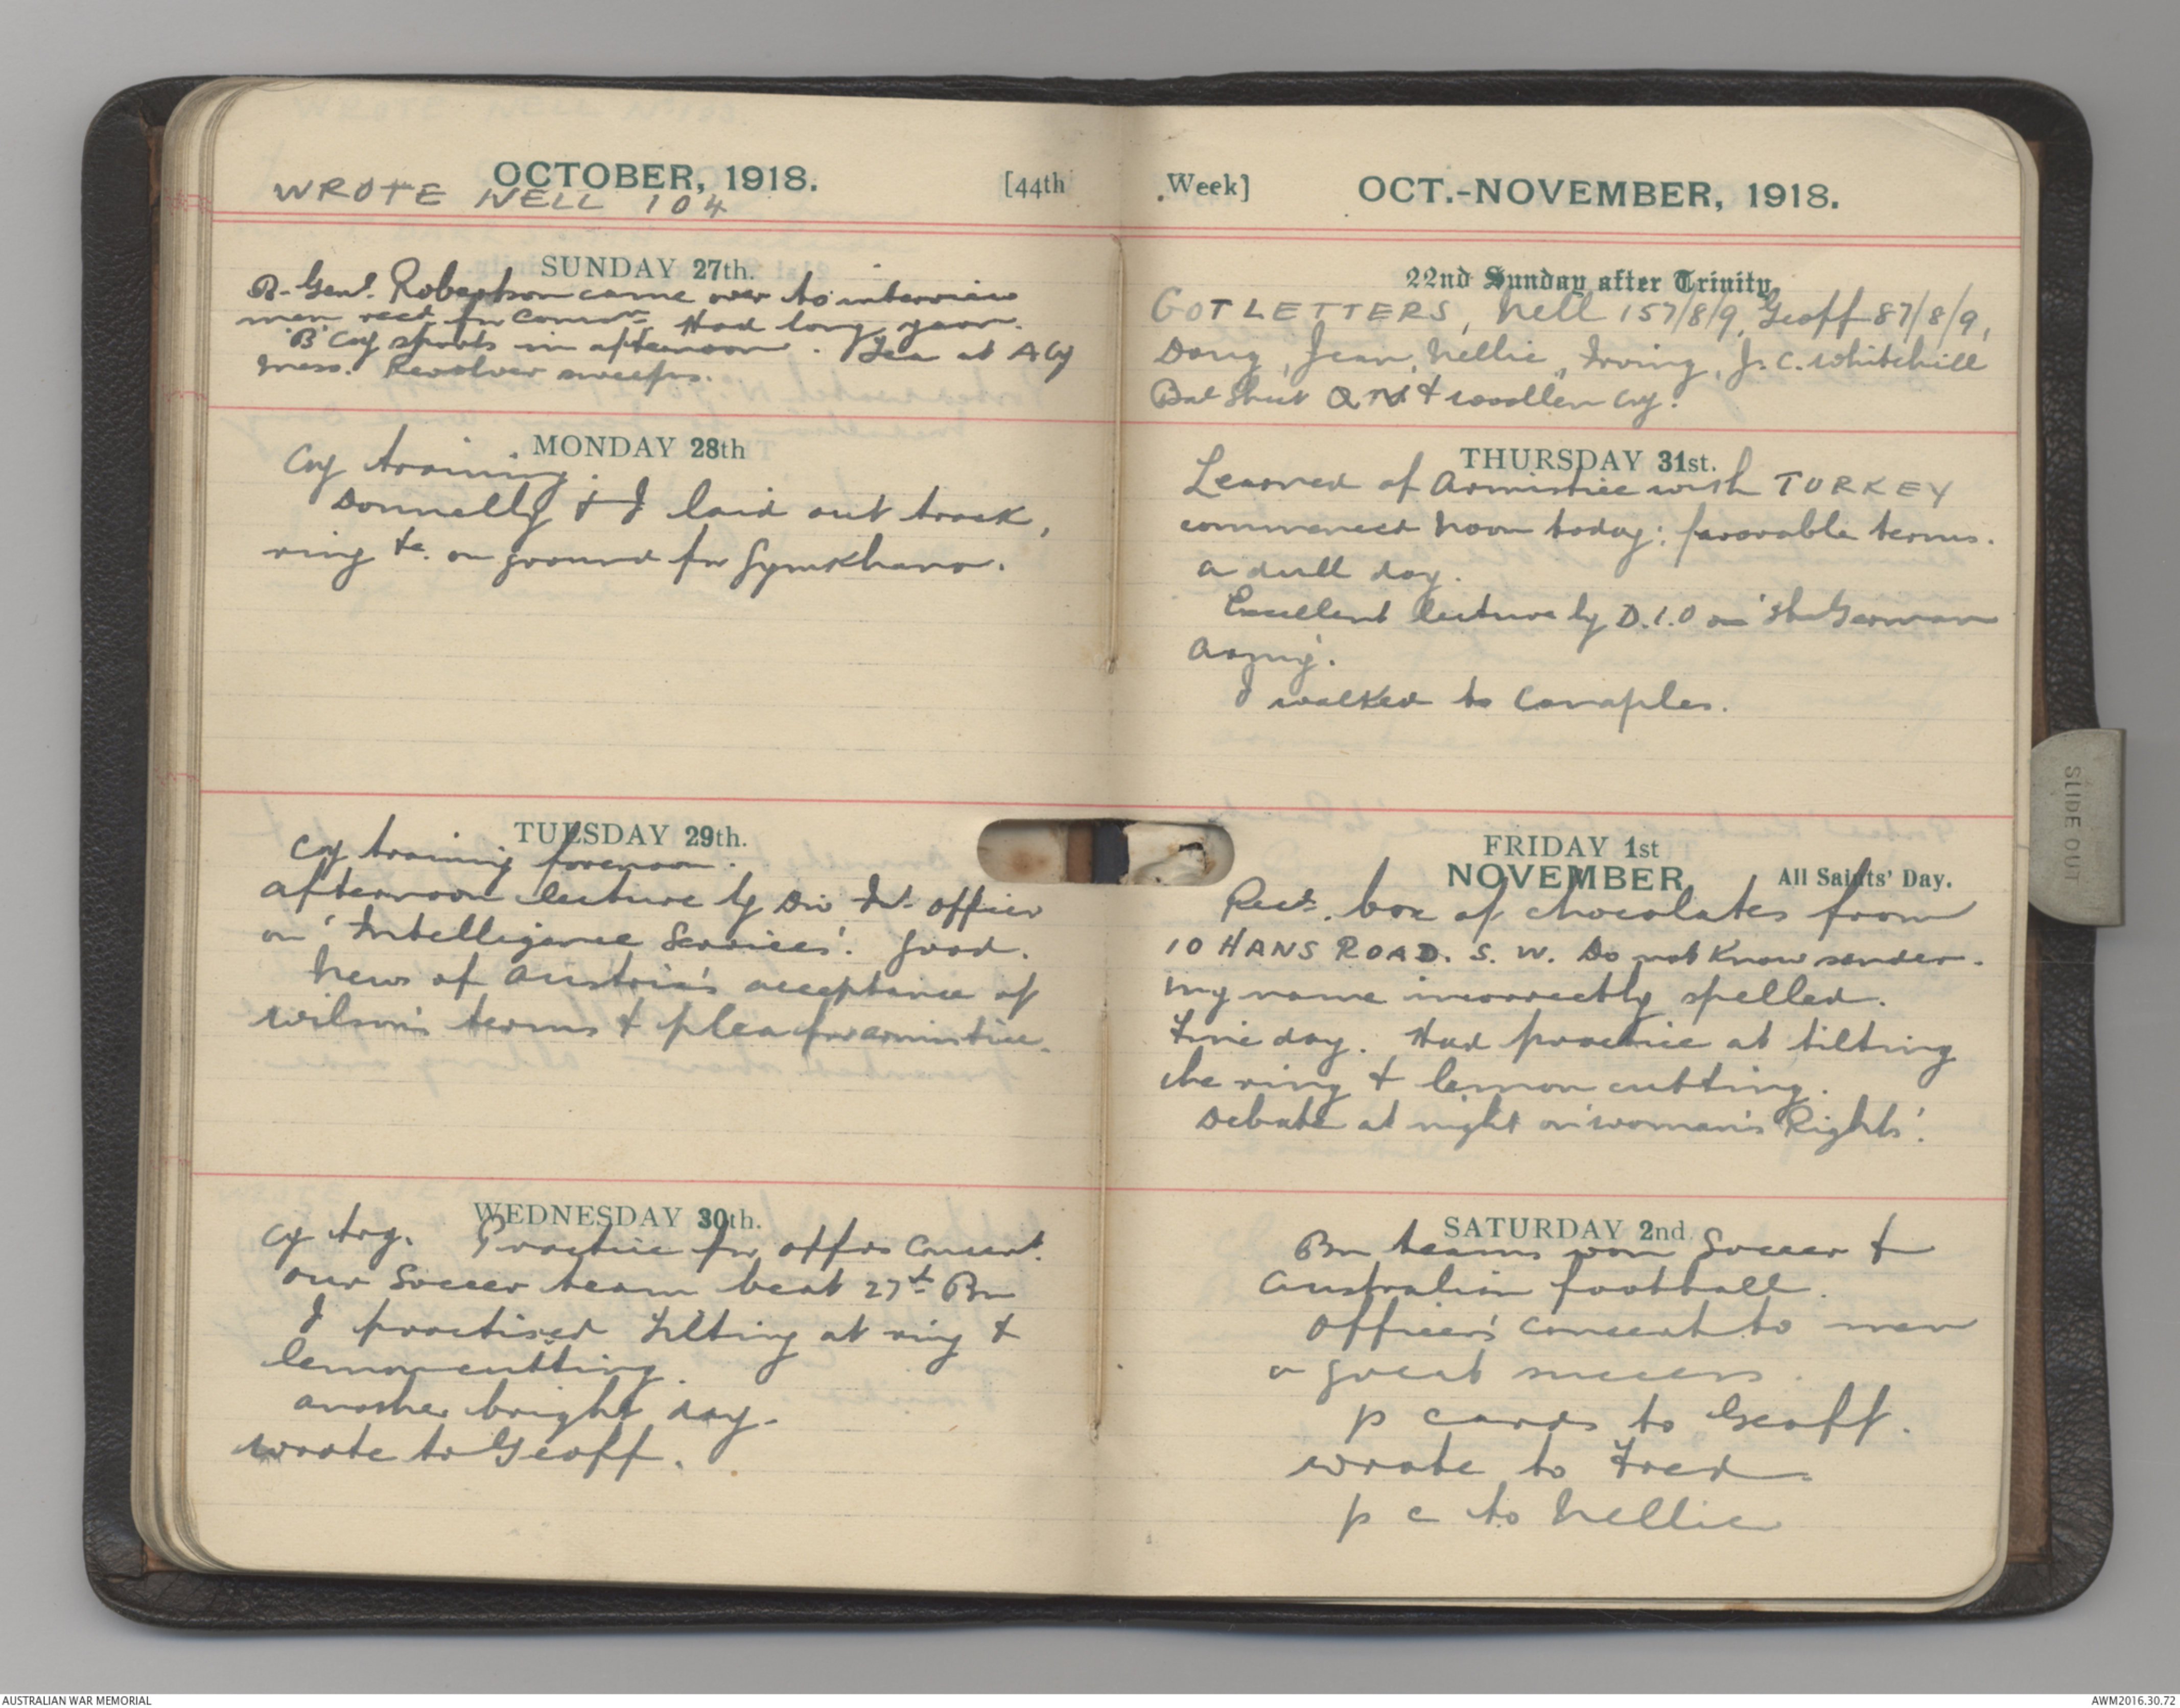 OCTOBER, 1918. [44th
WROTE NELL 104
SUNDAY 27th.
B-Genl. Robertson came over to interview
men recd for Commn. Had long yarn.
'B' Coy sports in afternoon. Tea at A Coy
mess. Revolver sweeps.
MONDAY 28th
Coy training.
Donnelly & I laid out track,
ring &c. on ground for Gymkhana.
TUESDAY 29th.
Coy training forenoon.
afternoon lecture by Div Int. officer
on 'Intelligence Services'. Good.
News of Austria's acceptance of
Wilson's terms & plea for armistice.
WEDNESDAY 30th.
Cy trg. Practice for offrs Concert.
Our Soccer team beat 27th Bn
I practised tilting at ring &
lemon cutting.
another bright day.
wrote to Geoff.
Week] OCT.-NOVEMBER, 1918.
22nd Sunday after Trinity.
GOT LETTERS, Nell 157/8/9, Geoff 87/8/9,
Doug, Jean, Nellie, Irving, J. C. Whitehill
Bal Sheet & woollen Coy.
THURSDAY 31st.
Learned of Armistice with TURKEY
commenced noon today: favorable terms.
a dull day.
Excellent lecture by D.I.O on 'the German
Army'.
I walked to Canaples.
FRIDAY 1st
NOVEMBER All Saints' Day.
Recd. box of chocolates from
10 HANS ROAD. S. W. Do not know sender.
My name incorrectly spelled.
Fine day. Had practice at tilting
the ring & lemon cutting.
Debate at night on 'woman's Rights'.
SATURDAY 2nd.
Bn teams won Soccer &
Australian football.
Officers' concert to men
a great success.
p cards to Geoff.
wrote to Fred.
p c to Nellie
SLIDE OUT
AUSTRALIAN WAR MEMORIAL
AWM2016.30.72